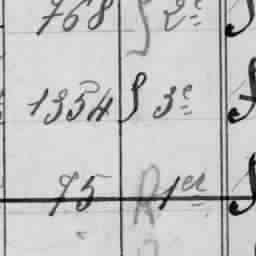 768 2e
1354 3e
75 R 1er